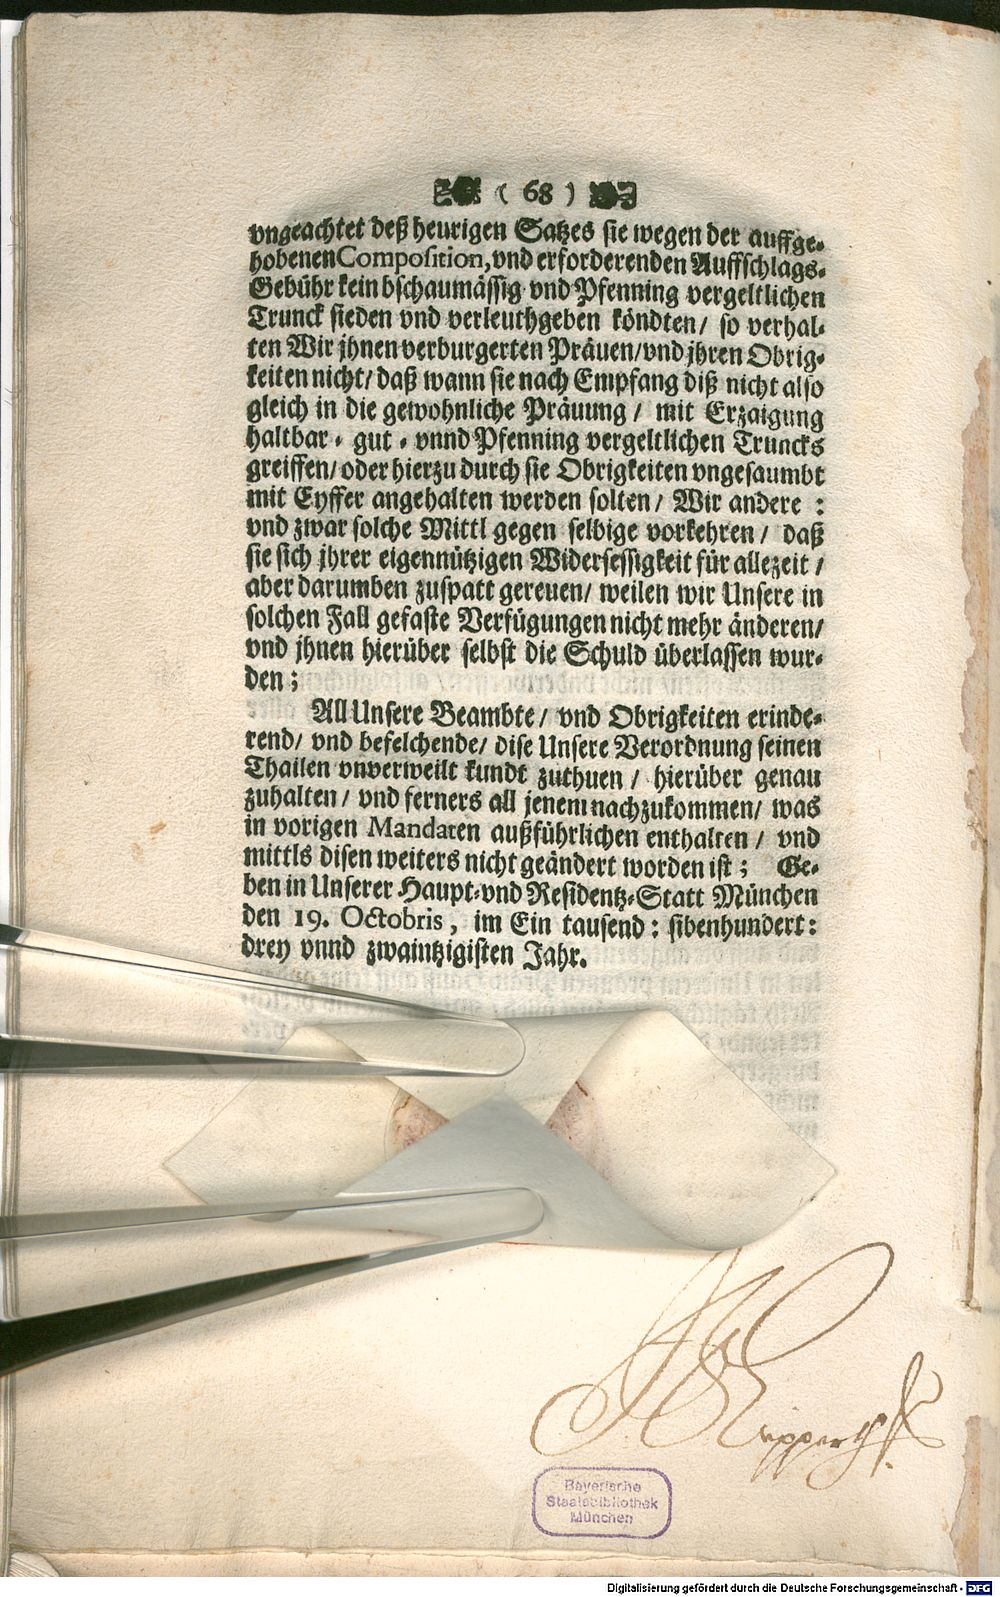 ( 68 )
vngeachtet deß heurigen Satzes sie wegen der auffge-
hobenen Composition, vnd erforderenden Auffschlags-
Gebühr kein bschaumässig vnd Pfenning vergeltlichen
Trunck sieden vnd verleuthgeben köndten / so verhal-
ten Wir jhnen verburgerten Präuen / vnd jhren Obrig-
keiten nicht / daß wann sie nach Empfang diß nicht also
gleich in die gewohnliche Präuung / mit Erzaigung
haltbar- gut- vnnd Pfenning vergeltlichen Truncks
greiffen / oder hierzu durch sie Obrigkeiten vngesaumbt
mit Eyffer angehalten werden solten / Wir andere :
vnd zwar solche Mittl gegen selbige vorkehren / daß
sie sich jhrer eigennützigen Widersessigkeit für allezeit /
aber darumben zuspatt gereuen / weilen wir Unsere in
solchen Fall gefaste Verfügungen nicht mehr änderen /
vnd jhnen hierüber selbst die Schuld überlassen wur-
den ;
All Unsere Beambte / vnd Obrigkeiten erinde-
rend / vnd befelchende / dise Unsere Verordnung seinen
Thailen vnverweilt kundt zuthuen / hierüber genau
zuhalten / vnd ferners all jenem nachzukommen / was
in vorigen Mandaten außführlichen enthalten / vnd
mittls disen weiters nicht geändert worden ist ; Ge-
ben in Unserer Haupt-vnd Residentz-Statt München
den 19. Octobris, im Ein tausend : sibenhundert :
drey vnnd zwaintzigisten Jahr.
Bayerische
Staatsbibliothek
München
Digitalisierung gefördert durch die Deutsche Forschungsgemeinschaft - DFG